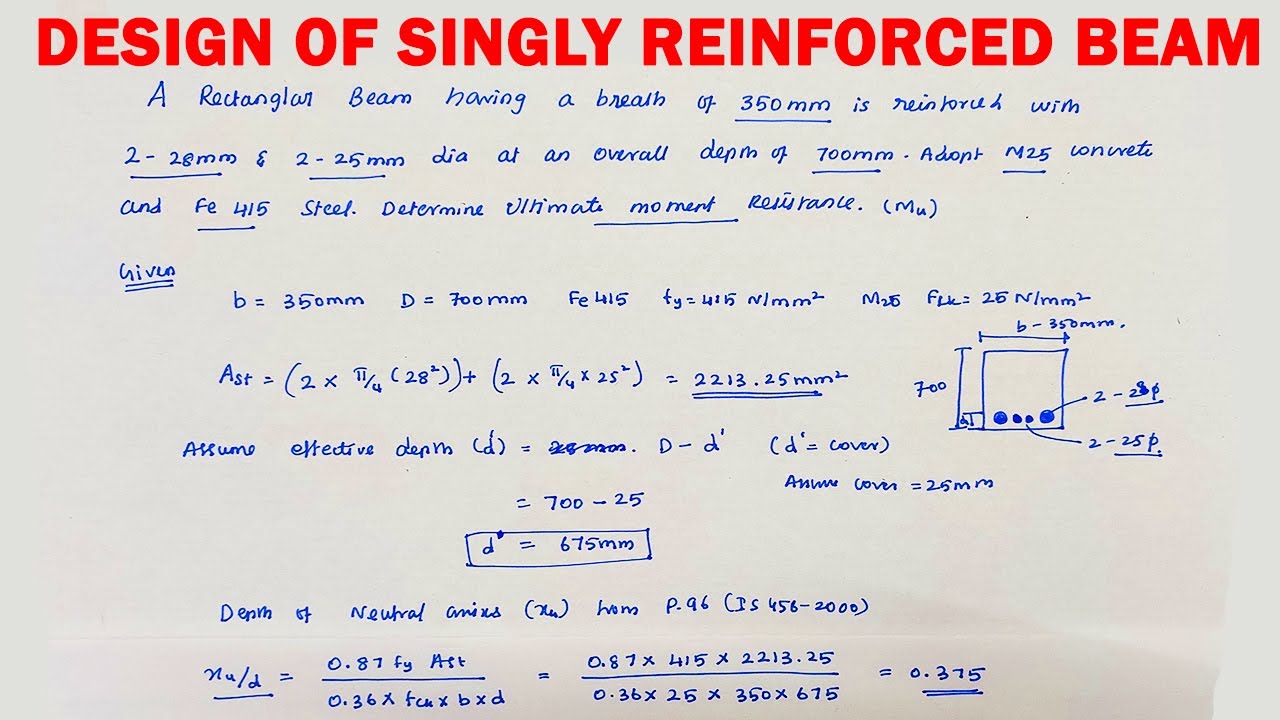 DESIGN OF SINGLY REINFORCED BEAM
A Rectanglar Beam having a breath of 350mm is reinforced with
2 - 28mm & 2 - 25mm dia at an overall depth of 700mm. Adopt M25 concrete
and Fe 415 Steel. Determine Ultimate moment Resistance. (Mu)
Given
b = 350mm D = 700mm Fe415 fy = 415 N/mm² M25 Fck = 25 N/mm²
b - 350mm.
Ast = (2 × π/4 (28²)) + (2 × π/4 × 25²) = 2213.25mm²
700
d'
2 - 28φ
2 - 25φ
Assume effective depth (d) = D - d' (d' = cover)
Assume cover = 25mm
= 700 - 25
d = 675mm
Depth of Neutral anixs (xu) from P.96 (IS 456-2000)
xu/d = 0.87 fy Ast / 0.36 × fck × b × d = 0.87 × 415 × 2213.25 / 0.36 × 25 × 350 × 675 = 0.375